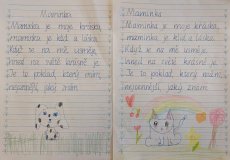 Maminka
Maminka je moje kráska,
maminka je klid a láska.
Když se na mě usměje,
hned na světě krásně je.
Je to poklad, který mám,
nejcennější, jaký znám.
Maminka
Maminka je moje kráska,
maminka je klid a láska.
Když se na mě usměje,
hned na světě krásně je.
Je to poklad, který mám,
nejcennější, jaký znám.